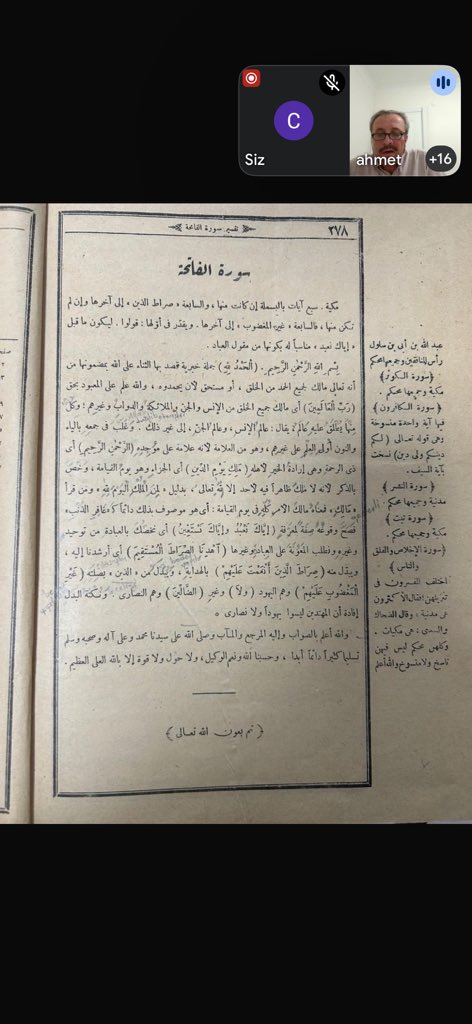 C
Siz
ahmet
+16
تفسير سورة الفاتحة
٣٧٨
سورة الفاتحة
مكية . سبع آيات بالبسملة إن كانت منها ، والسابعة « صراط الذين » إلى آخرها وإن لم
تكن منها ، فالسابعة « غير المغضوب » إلى آخرها . ويقدر فى أولها : قولوا . ليكون ما قبل
« إياك نعبد » مناسباً له بكونها من مقول العباد .
بِسْمِ اللهِ الرَّحْمٰنِ الرَّحِيمِ . ( الْحَمْدُ لِلهِ ) جملة خبرية قصد بها الثناء على الله بمضمونها من
أنه تعالى مالك لجميع الحمد من الخلق ، أو مستحق لأن يحمدوه ، والله علم على المعبود بحق
( رَبِّ الْعَالَمِينَ ) أى مالك جميع الخلق من الإنس والجن والملائكة والدواب وغيرهم : وكل
منها يطلق عليه عالم ، يقال : عالم الإنس ، وعالم الجن ، إلى غير ذلك . وغلب فى جمعه بالياء
والنون أولى العلم على غيرهم ، وهو من العلامة لأنه علامة على موجده ( الرَّحْمٰنِ الرَّحِيمِ ) أى
ذى الرحمة وهى إرادة الخير لأهله ( مَلِكِ يَوْمِ الدِّينِ ) أى الجزاء وهو يوم القيامة ، وخص
بالذكر لأنه لا ملك ظاهراً فيه لأحد إلا لله تعالى ، بدليل « لمن الملك اليوم لله » ومن قرأ
« مالك » فمعناه مالك الأمر كله فى يوم القيامة : أى هو موصوف بذلك دائماً كـ « غافر الذنب »
فصح وقوعه صفة لمعرفة ( إِيَّاكَ نَعْبُدُ وَإِيَّاكَ نَسْتَعِينُ ) أى نخصك بالعبادة من توحيد
وغيره ونطلب المعونة على العبادة وغيرها ( اهْدِنَا الصِّرَاطَ الْمُسْتَقِيمَ ) أى أرشدنا إليه ،
ويبدل منه ( صِرَاطَ الَّذِينَ أَنْعَمْتَ عَلَيْهِمْ ) بالهداية ، ويبدل من « الذين » بصلته ( غَيْرِ
الْمَغْضُوبِ عَلَيْهِمْ ) وهم اليهود ( وَلاَ ) وغير ( الضَّالِّينَ ) وهم النصارى . ونكتة البدل
إفادة أن المهتدين ليسوا يهوداً ولا نصارى ه
والله أعلم بالصواب وإليه المرجع والمآب وصلى الله على سيدنا محمد وعلى آله وصحبه وسلم
تسليما كثيراً دائماً أبدا ، وحسبنا الله ونعم الوكيل ، ولا حول ولا قوة إلا بالله العلى العظيم .
( تم بعون الله تعالى )
عبد الله بن أبى بن سلول
رأس المنافقين وجميعها محكم
( سورة الكوثر )
مكية وجميعها محكم .
( سورة الكافرون )
فيها آية واحدة منسوخة
وهى قوله تعالى ( لكم
دينكم ولى دين ) نسخت
بآية السيف .
( سورة النصر )
مدنية وجميعها محكم .
( سورة تبت )
مكية وجميعها محكم .
( سورة الإخلاص والفلق
والناس )
اختلف المفسرون فى
تنزيلهن فقال الأكثرون
هى مدنية ، وقال الضحاك
والسدى : هى مكيات .
وكلهن محكم ليس فيهن
ناسخ ولا منسوخ والله أعلم